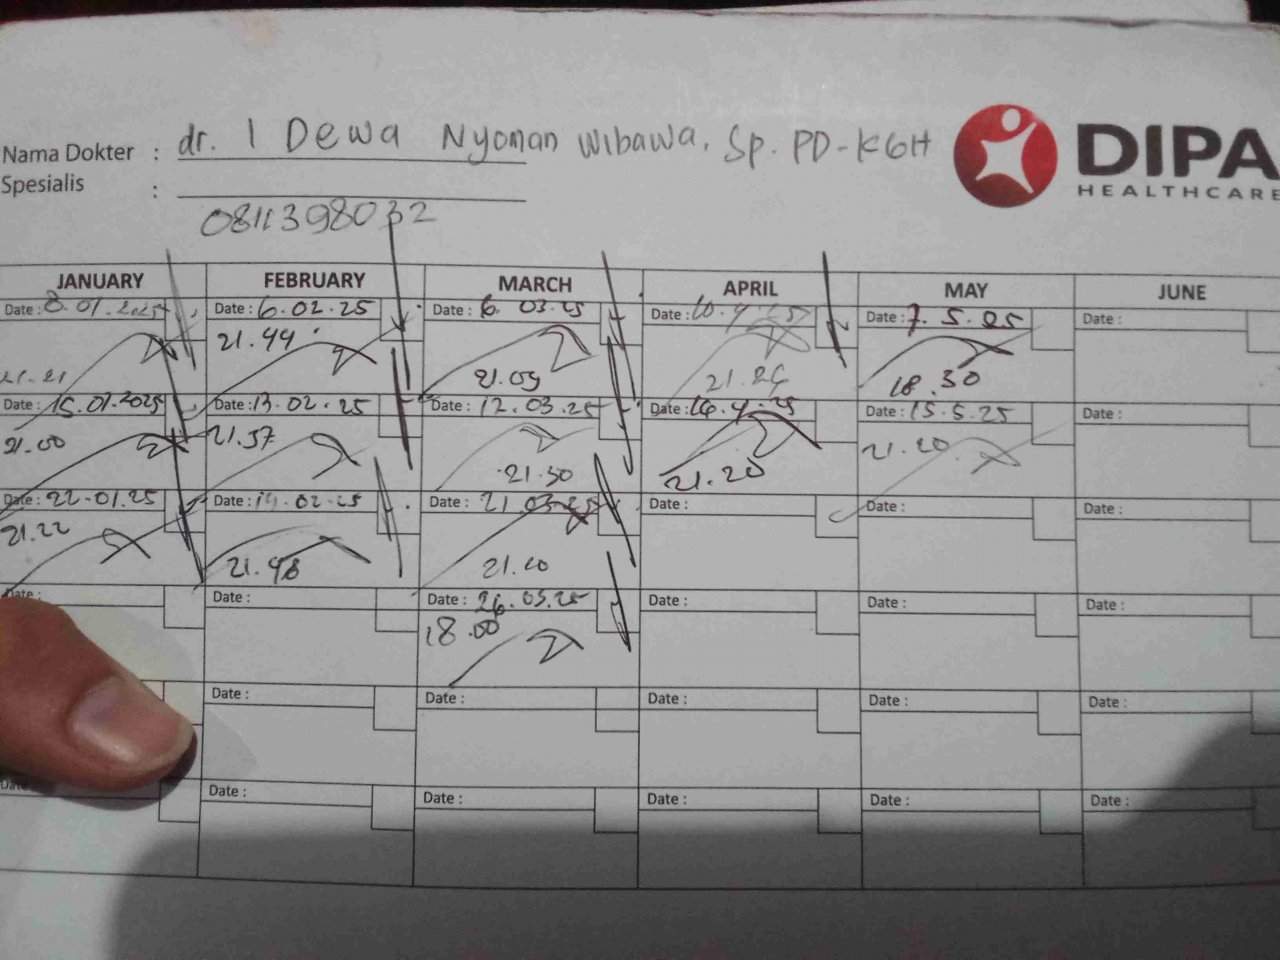 dr. I Dewa Nyoman Wibawa, Sp. PD-KGH
Nama Dokter :
Spesialis :
0811398032
DIPA
HEALTHCARE
JANUARY FEBRUARY MARCH APRIL MAY JUNE
Date : 8.01.2025 Date : 6.02.25 Date : 6. 03.25 Date : 10.4.25 Date : 7.5.25 Date :
21.21 21.44 21.09 21.24 18.30
Date : 15.01.2025 Date : 13.02.25 Date : 12.03.25 Date : 16.4.25 Date : 15.5.25 Date :
21.00 21.37 21.30 21.20 21.20
Date : 22-01.25 Date : 19.02.25 Date : 21.03.25 Date : Date : Date :
21.22 21.48 21.20
Date : Date : Date : 26.03.25 Date : Date : Date :
18.00
Date : Date : Date : Date : Date :
Date : Date : Date : Date : Date : Date :